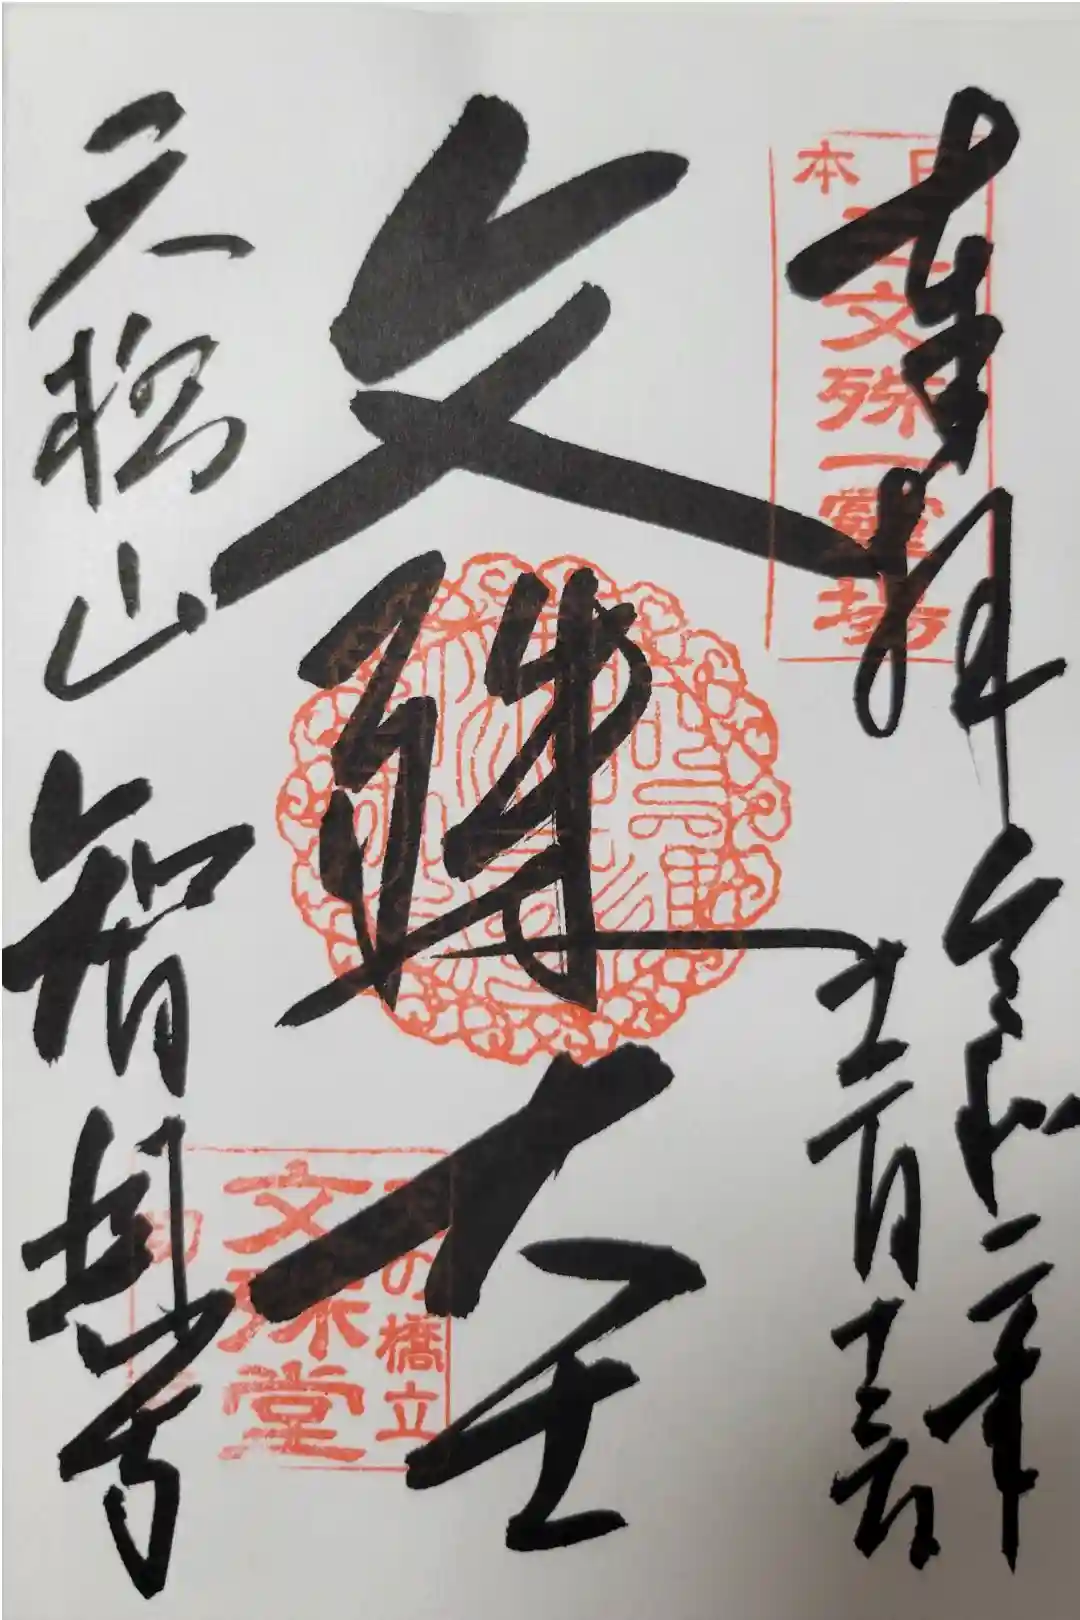 奉拝
令和二年
日本
三文殊一靈場
文殊大士
天の橋立
文殊堂
天橋山
智恩寺